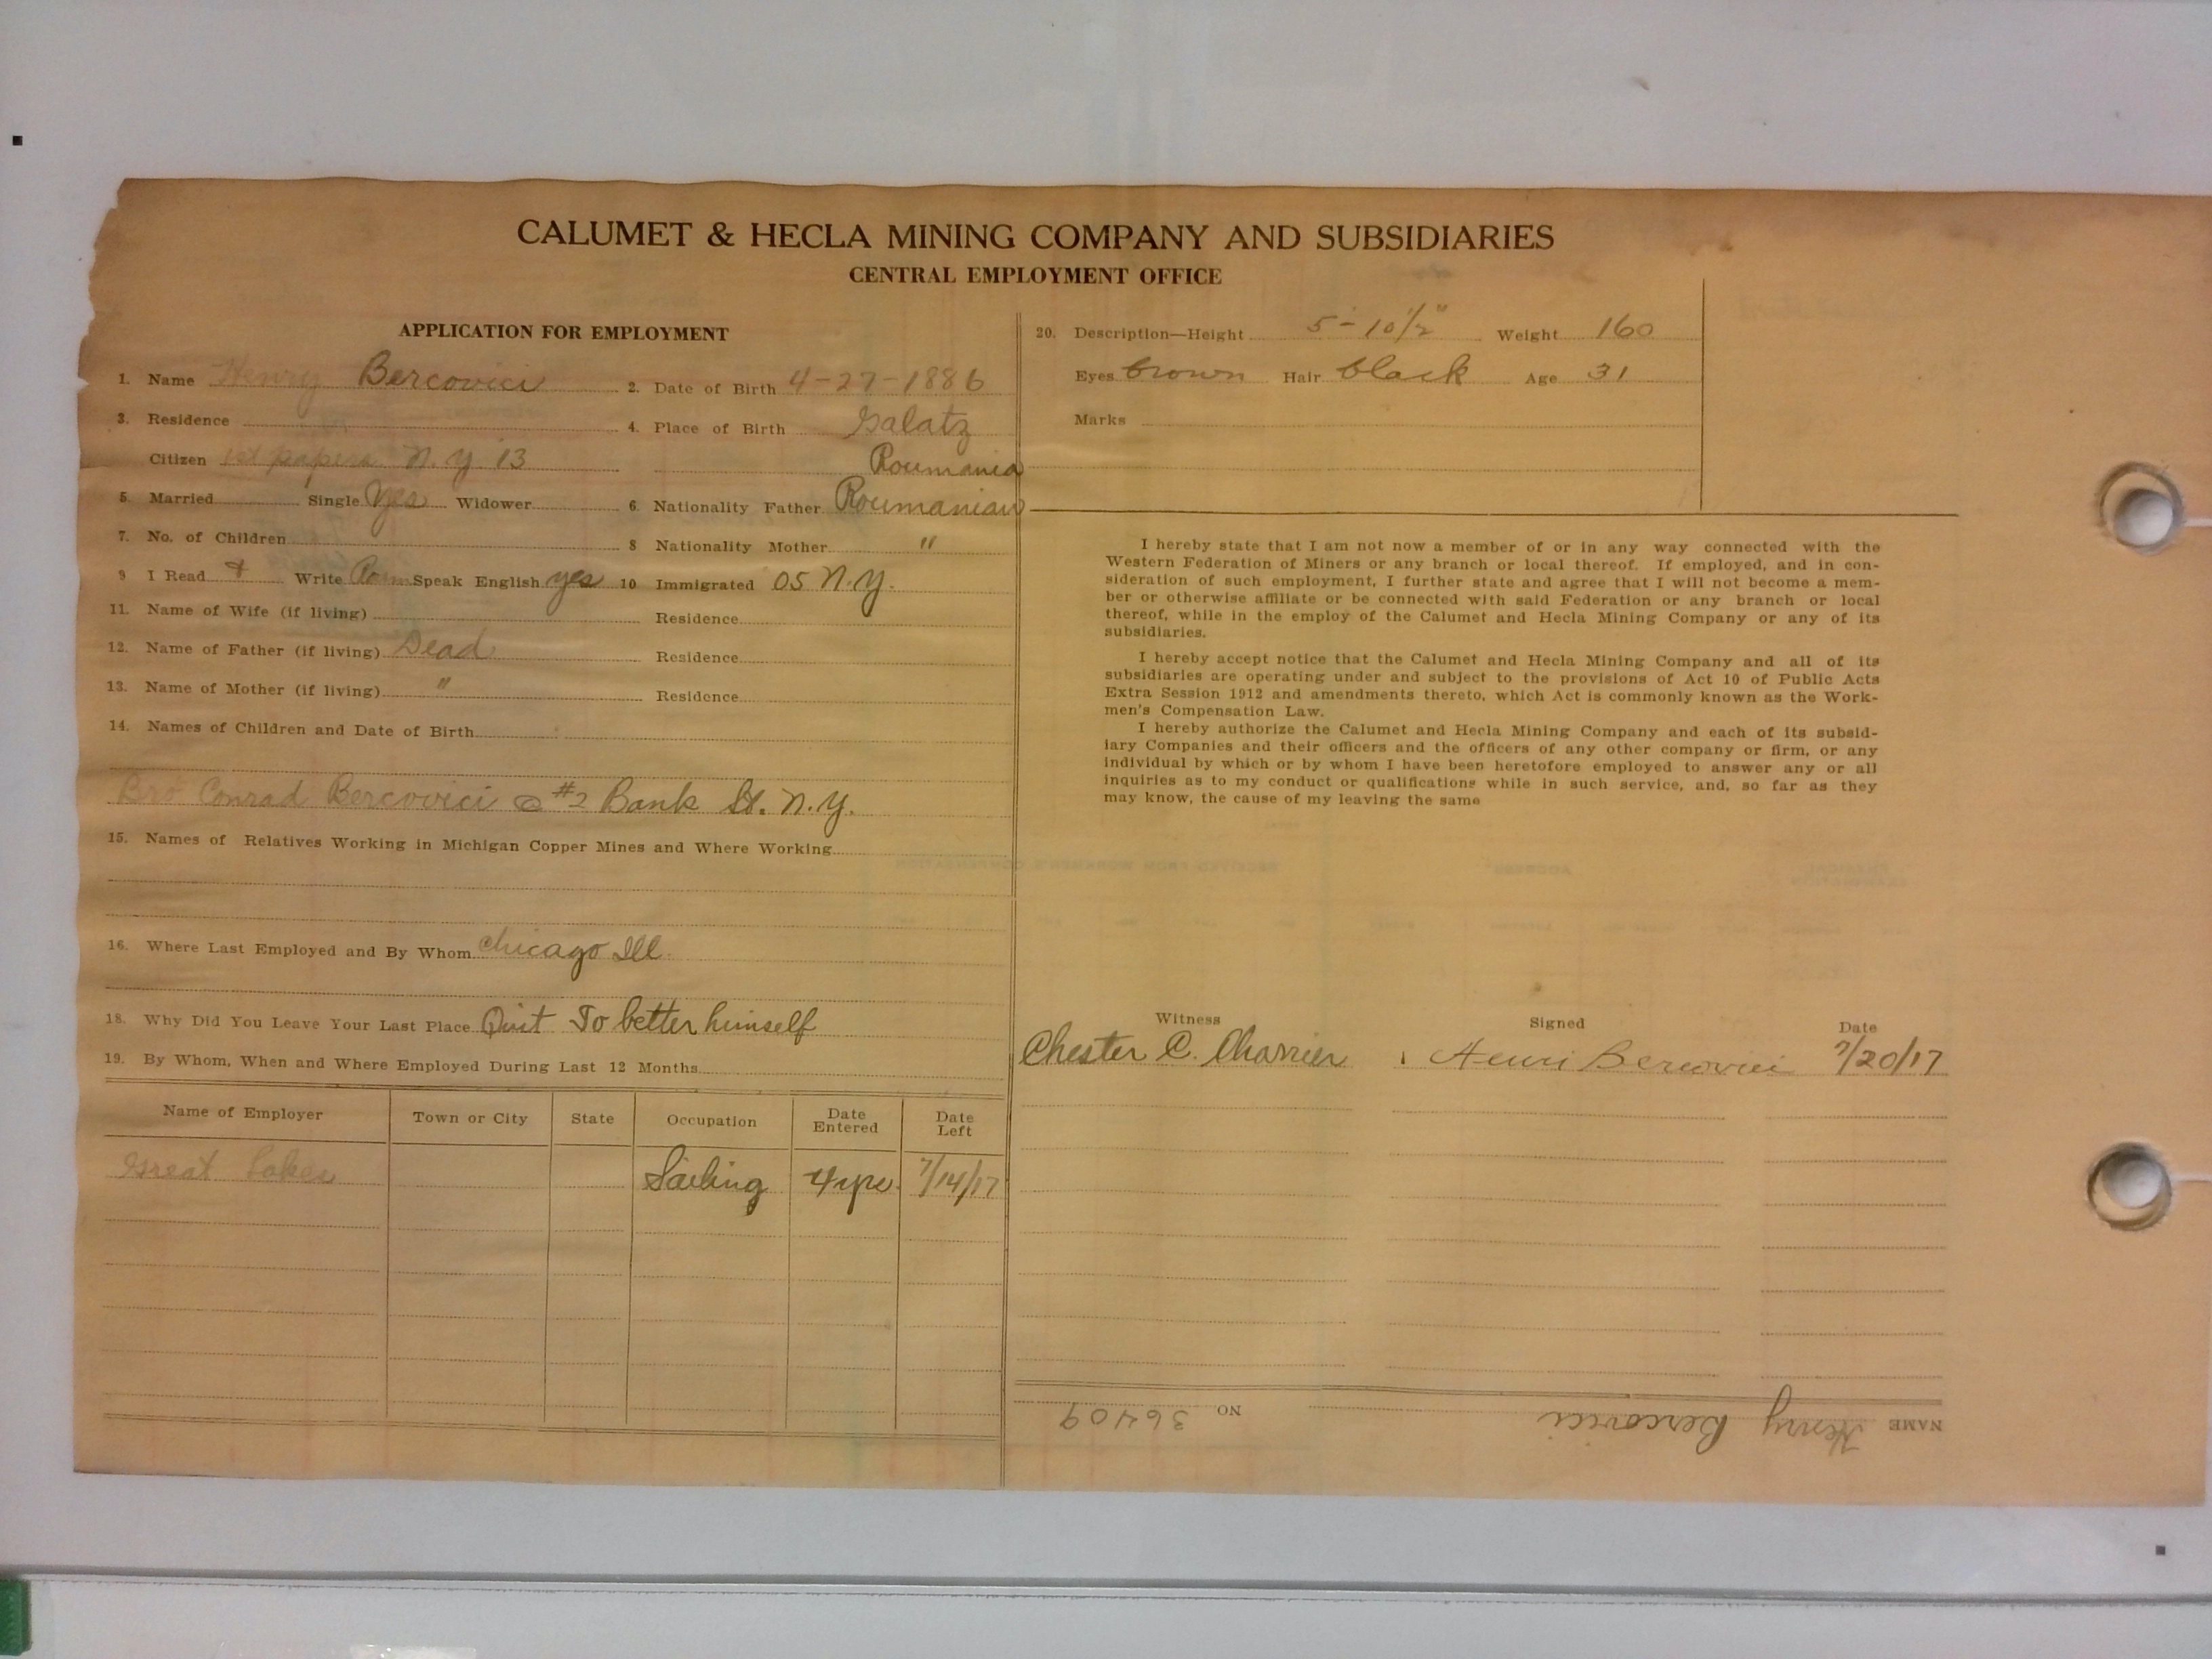 CALUMET & HECLA MINING COMPANY AND SUBSIDIARIES
CENTRAL EMPLOYMENT OFFICE
APPLICATION FOR EMPLOYMENT
1. Name Henry Bercovici 2. Date of Birth 4-27-1886
3. Residence 4. Place of Birth Galatz
Citizen 1st papers N.Y. 13 Roumania
5. Married Single Yes Widower 6. Nationality Father Roumanian
7. No. of Children 8 Nationality Mother "
9 I Read + Write Rom Speak English yes 10 Immigrated 05 N.Y.
11. Name of Wife (if living) Residence
12. Name of Father (if living) Dead Residence
13. Name of Mother (if living) " Residence
14. Names of Children and Date of Birth
Bro Conrad Bercovici @ #2 Bank St. N.Y.
15. Names of Relatives Working in Michigan Copper Mines and Where Working
16. Where Last Employed and By Whom Chicago Ill
18. Why Did You Leave Your Last Place Quit To better himself
19. By Whom, When and Where Employed During Last 12 Months
Name of Employer Town or City State Occupation Date Entered Date Left
Great Lakes Sailing 4 yrs. 7/14/17
20. Description—Height 5'-10 1/2" Weight 160
Eyes brown Hair black Age 31
Marks
I hereby state that I am not now a member of or in any way connected with the
Western Federation of Miners or any branch or local thereof. If employed, and in con-
sideration of such employment, I further state and agree that I will not become a mem-
ber or otherwise affiliate or be connected with said Federation or any branch or local
thereof, while in the employ of the Calumet and Hecla Mining Company or any of its
subsidiaries.
I hereby accept notice that the Calumet and Hecla Mining Company and all of its
subsidiaries are operating under and subject to the provisions of Act 10 of Public Acts
Extra Session 1912 and amendments thereto, which Act is commonly known as the Work-
men's Compensation Law.
I hereby authorize the Calumet and Hecla Mining Company and each of its subsid-
iary Companies and their officers and the officers of any other company or firm, or any
individual by which or by whom I have been heretofore employed to answer any or all
inquiries as to my conduct or qualifications while in such service, and, so far as they
may know, the cause of my leaving the same
Witness Signed Date
Chester C. Charrier Henri Bercovici 7/20/17
NAME Henry Bercovici NO 36409